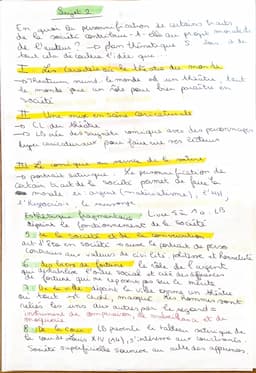 Sujet 2
En quoi la personnification de certains traits
de la société contribue-t-elle au projet moraliste
de l'auteur ? → plan thématique
tout cela découle l'idée que
I. Les Caractères : le théâtre du monde
→ Theatrum mundi le monde est un théâtre, tout
le monde joue un rôle pour bien paraître en
société
II. Une mise en scène caricaturale
→ CL du théâtre
→ LB crée des saynètes comiques avec des personnages
types caricaturaux pour faire rire ses lecteurs
III. Le comique au service de la satire
→ portrait satirique. La personnification de
certains traits de la société permet de faire la
morale ex: argent (matérialisme),
l'hypocrisie, le mensonge
Esthétique fragmentaire Livre 5 à 10 LB
dépeint le fonctionnement de la société
5. De la société et de la conversation
art d'être en société → sous le portrait de perso
contraires aux valeurs de civilité, politesse et honnêteté
6. des biens de fortune le rôle de l'argent
qui bouleverse l'ordre social et crée des
de fortune qui ne reposent pas sur le mérite
7. De la ville dépeint la ville comme un théâtre
où tout est masque. Les hommes sont
reliés les uns aux autres par le regard =
instrument de comparaison, de malveillance et de
moquerie
8. De la cour LB présente le tableau satirique de
la cour de Louis XIV (14) s'intéresse aux courtisans.
Société superficielle soumise au culte des apparences.